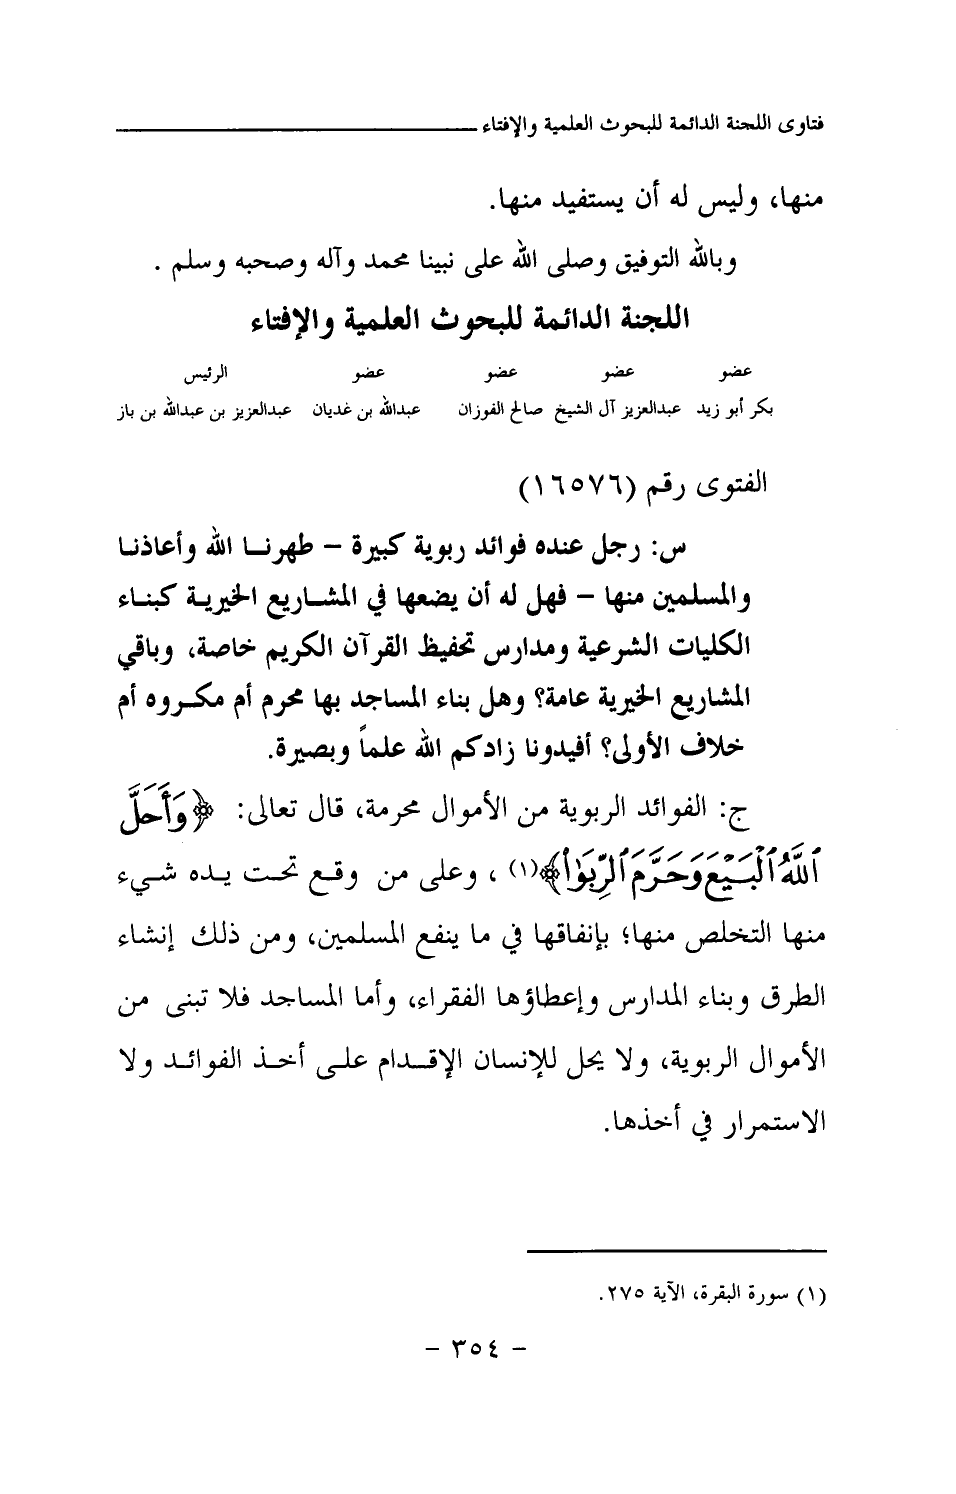 فتاوى اللجنة الدائمة للبحوث العلمية والإفتاء
منها، وليس له أن يستفيد منها.
وبالله التوفيق وصلى الله على نبينا محمد وآله وصحبه وسلم .
اللجنة الدائمة للبحوث العلمية والإفتاء
عضو عضو عضو عضو الرئيس
بكر أبو زيد عبدالعزيز آل الشيخ صالح الفوزان عبدالله بن غديان عبدالعزيز بن عبدالله بن باز
الفتوى رقم (١٦٥٧٦)
س: رجل عنده فوائد ربوية كبيرة – طهرنا الله وأعاذنا
والمسلمين منها – فهل له أن يضعها في المشاريع الخيرية كبناء
الكليات الشرعية ومدارس تحفيظ القرآن الكريم خاصة، وباقي
المشاريع الخيرية عامة؟ وهل بناء المساجد بها محرم أم مكروه أم
خلاف الأولى؟ أفيدونا زادكم الله علماً وبصيرة.
ج: الفوائد الربوية من الأموال محرمة، قال تعالى: ﴿وَأَحَلَّ
ٱللَّهُ ٱلْبَيْعَ وَحَرَّمَ ٱلرِّبَوٰا۟﴾(١) ، وعلى من وقع تحت يده شيء
منها التخلص منها؛ بإنفاقها في ما ينفع المسلمين، ومن ذلك إنشاء
الطرق وبناء المدارس وإعطاؤها الفقراء، وأما المساجد فلا تبنى من
الأموال الربوية، ولا يحل للإنسان الإقدام على أخذ الفوائد ولا
الاستمرار في أخذها.
(١) سورة البقرة، الآية ٢٧٥.
– ٣٥٤ –